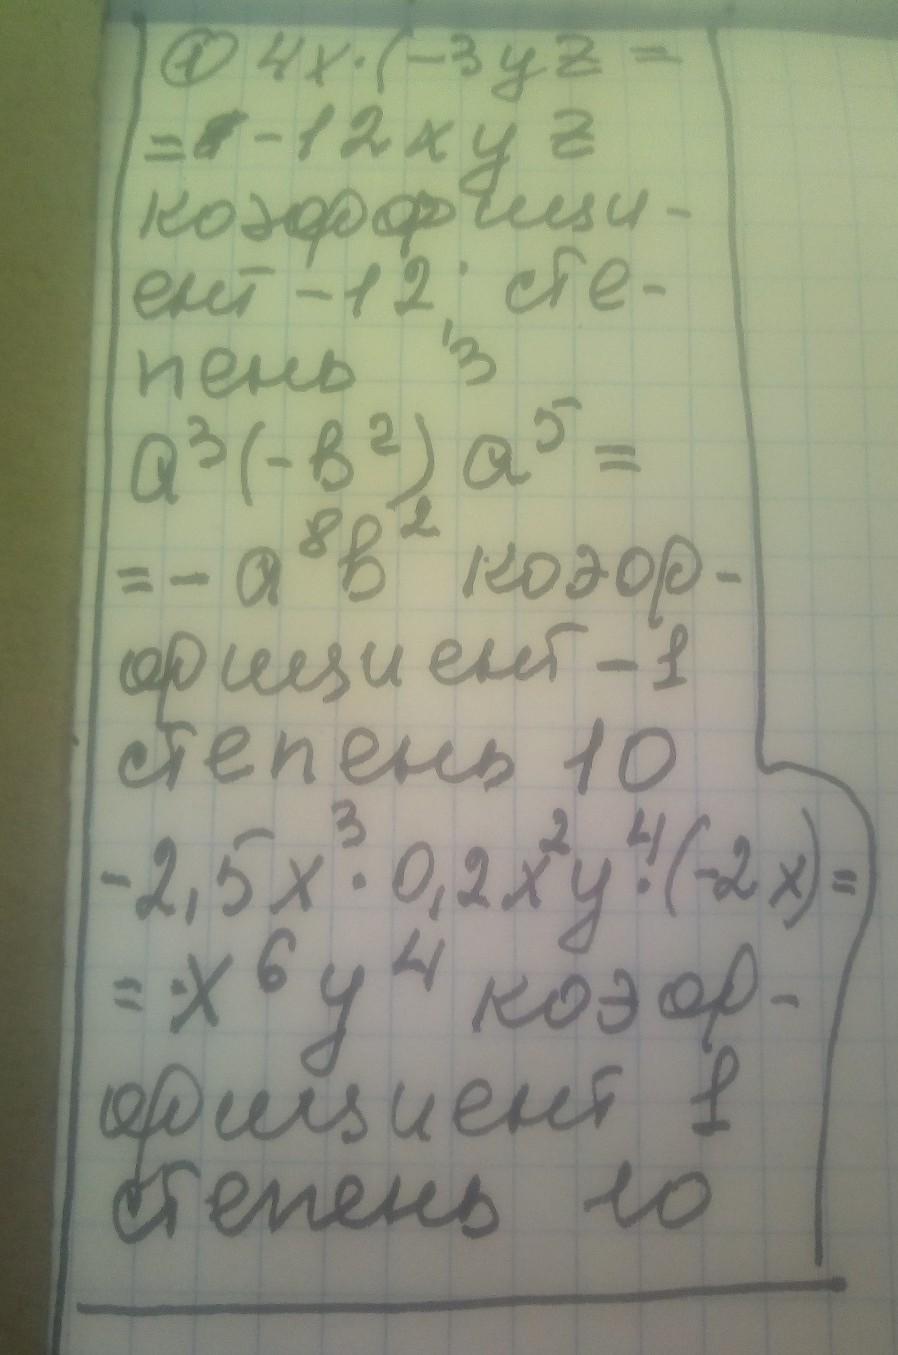 ① 4x·(-3yz =
= -12xyz
коэффици-
ент -12; сте-
пень 3
a³(-b²)a⁵=
=-a⁸b² коэф-
фициент -1
степень 10
-2,5x³·0,2x²y⁴·(-2x)=
=x⁶y⁴ коэф-
фициент 1
степень 10